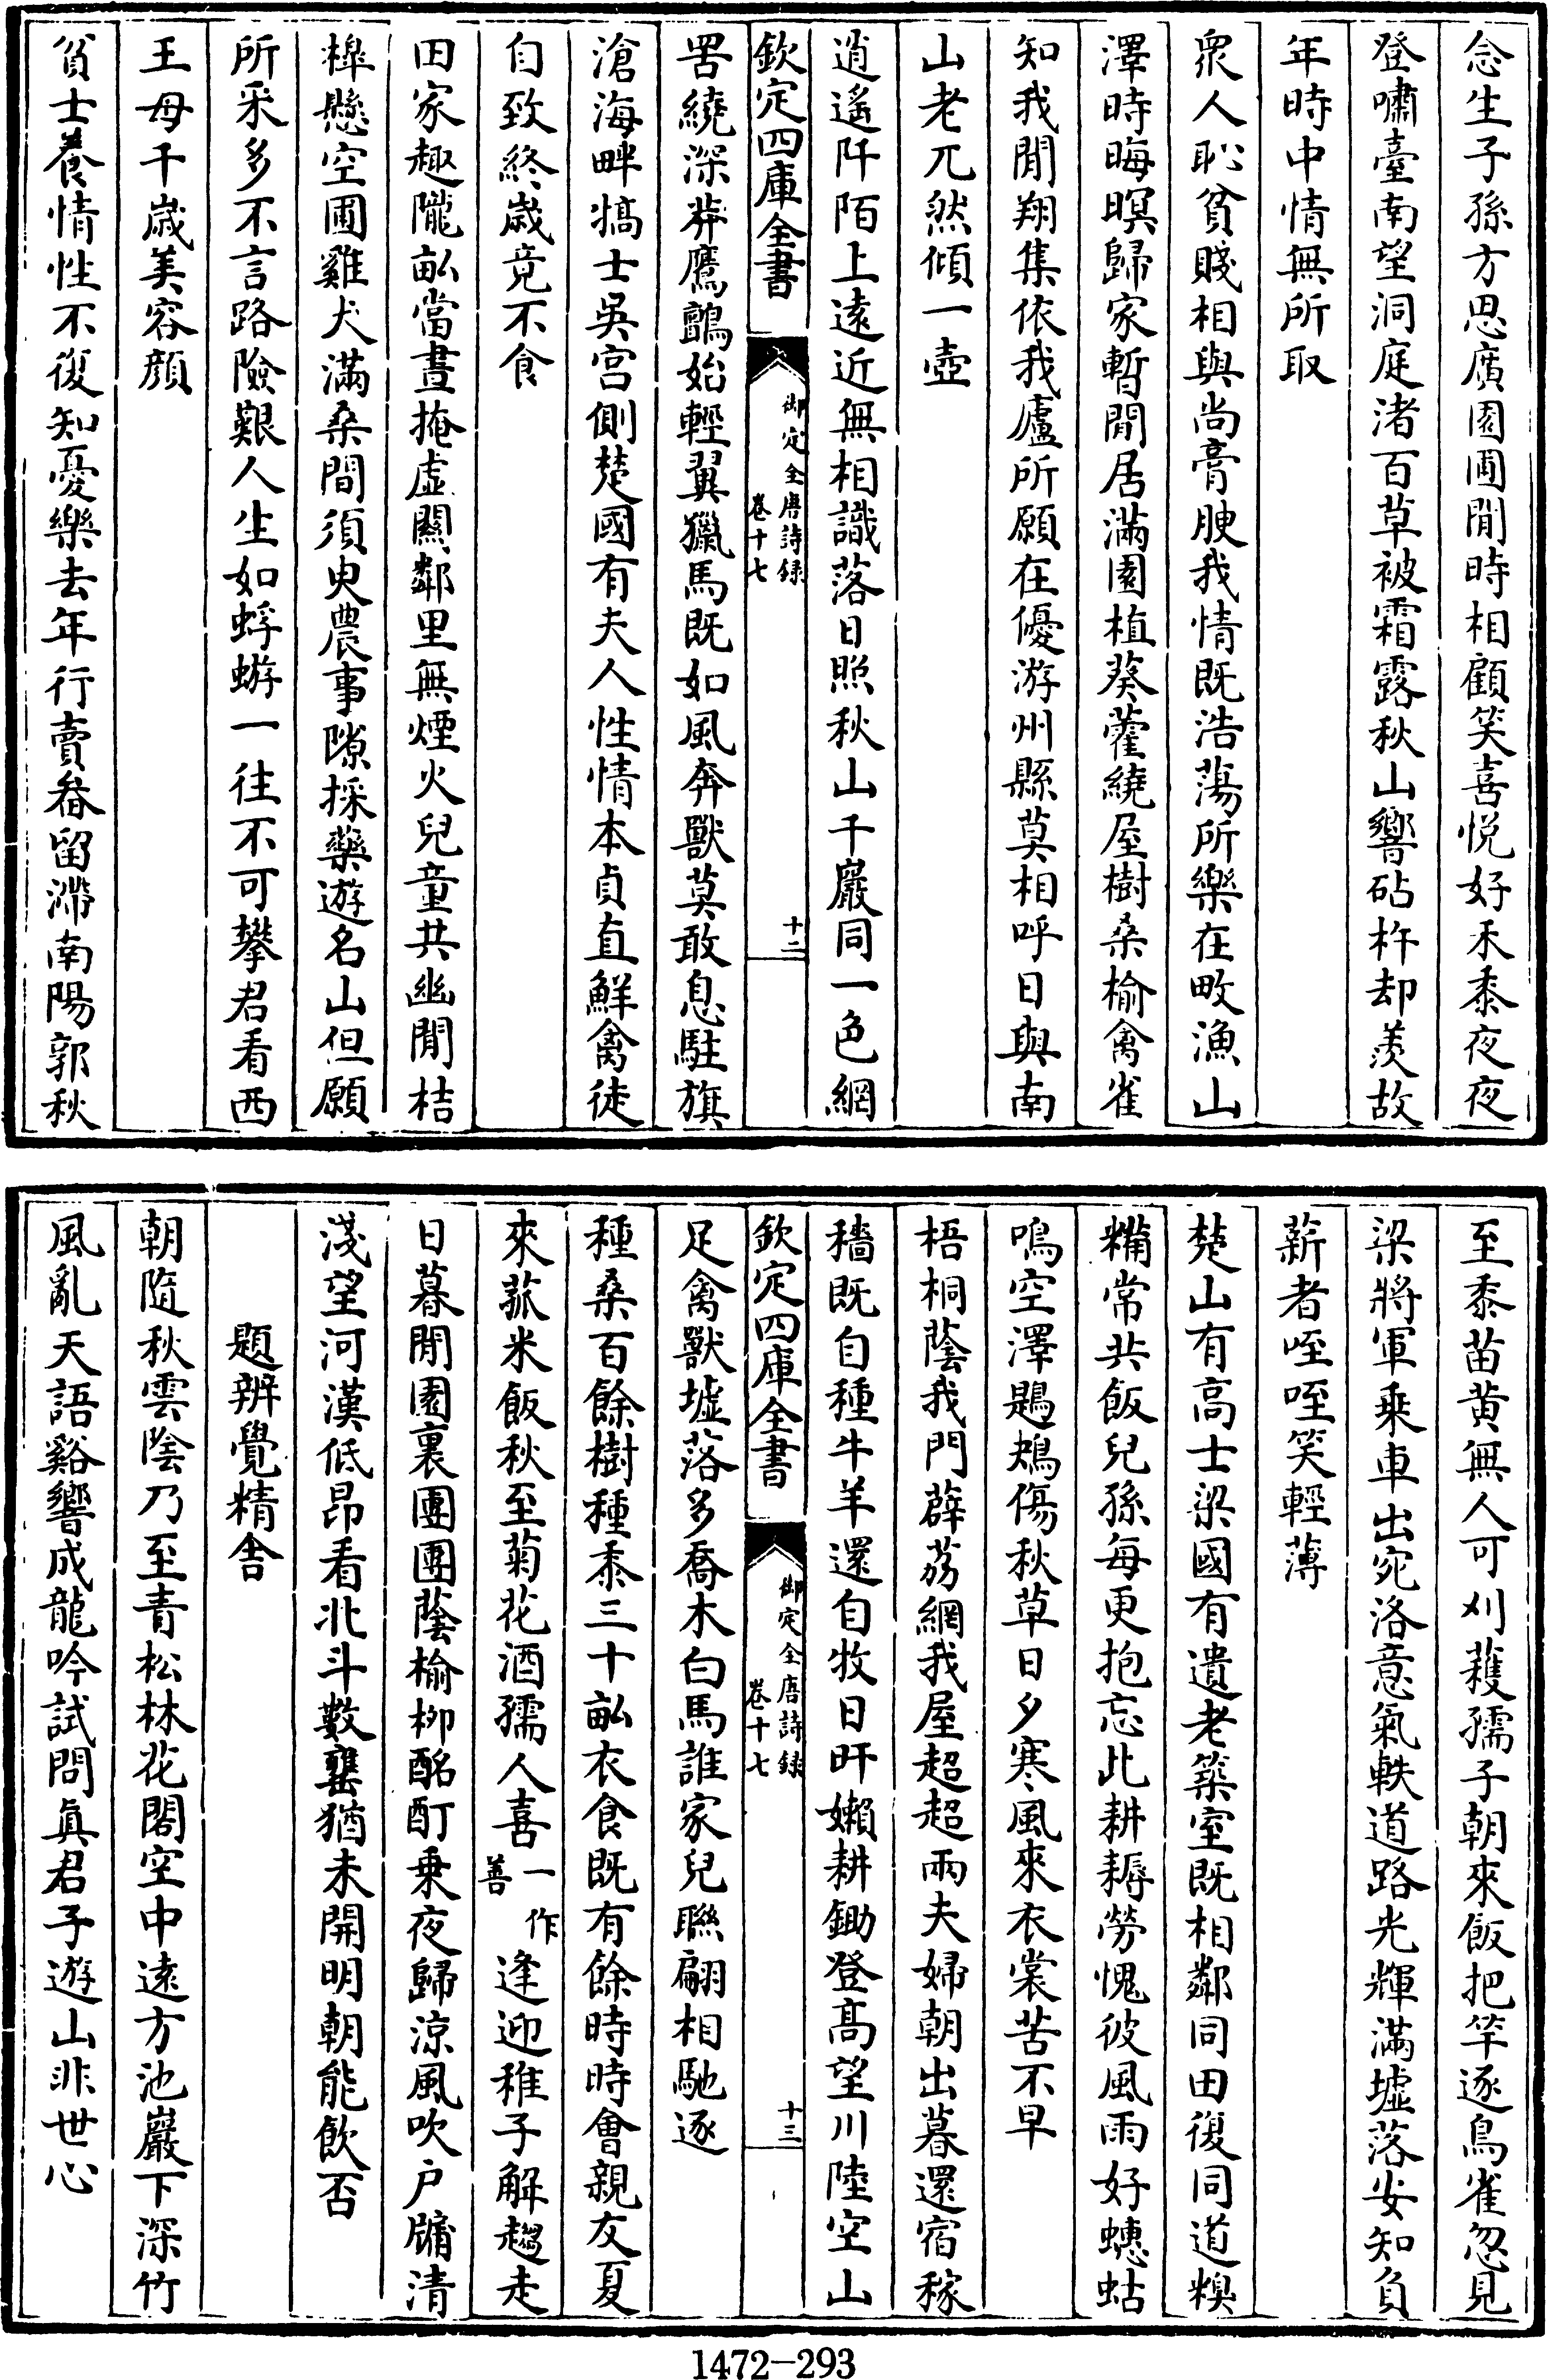 念生子孫方思廣園圃閒時相顧笑喜悅好禾黍夜夜
登嘯臺南望洞庭渚百草被霜露秋山響砧杵却羨故
年時中情無所取
衆人恥貧賤相與尚膏腴我情既浩蕩所樂在畋漁山
澤時晦暝歸家暫閒居滿園植葵藿繞屋樹桑榆禽雀
知我閒翔集依我廬所願在優游州縣莫相呼日與南
山老兀然傾一壺
逍遙阡陌上遠近無相識落日照秋山千巖同一色網
欽定四庫全書
御定全唐詩録
卷十七
十二
罟繞深莽鷹鸇始輕翼獵馬既如風奔獸莫敢息駐旗
滄海畔犒士吳宮側楚國有夫人性情本貞直鮮禽徒
自致終歲竟不食
田家趣隴畝當晝掩虛關鄰里無煙火兒童共幽閒桔
槹懸空圃雞犬滿桑間須臾農事隙採藥遊名山但願
所采多不言路險艱人生如蜉蝣一往不可攀君看西
王母千歲美容顏
貧士養情性不復知憂樂去年行賣畚留滯南陽郭秋
至黍苗黃無人可刈穫孺子朝來飯把竿逐鳥雀忽見
梁將軍乘車出宛洛意氣軼道路光輝滿墟落安知負
薪者咥咥笑輕薄
楚山有高士梁國有遺老築室既相鄰同田復同道糗
糒常共飯兒孫每更抱忘此耕耨勞愧彼風雨好蟪蛄
鳴空澤鶗鴂傷秋草日夕寒風來衣裳苦不早
梧桐蔭我門薜荔網我屋超超兩夫婦朝出暮還宿稼
穡既自種牛羊還自牧日旰嬾耕鋤登高望川陸空山
欽定四庫全書
御定全唐詩録
卷十七
十三
足禽獸墟落多喬木白馬誰家兒聯翩相馳逐
種桑百餘樹種黍三十畝衣食既有餘時時會親友夏
來菰米飯秋至菊花酒孺人喜一作善逢迎稚子解趨走
日暮閒園裏團團蔭榆柳酩酊乘夜歸涼風吹户牖清
淺望河漢低昂看北斗數甕猶未開明朝能飲否
題辨覺精舍
朝隨秋雲陰乃至青松林花閣空中遠方池巖下深竹
風亂天語谿響成龍吟試問眞君子遊山非世心
1472-293